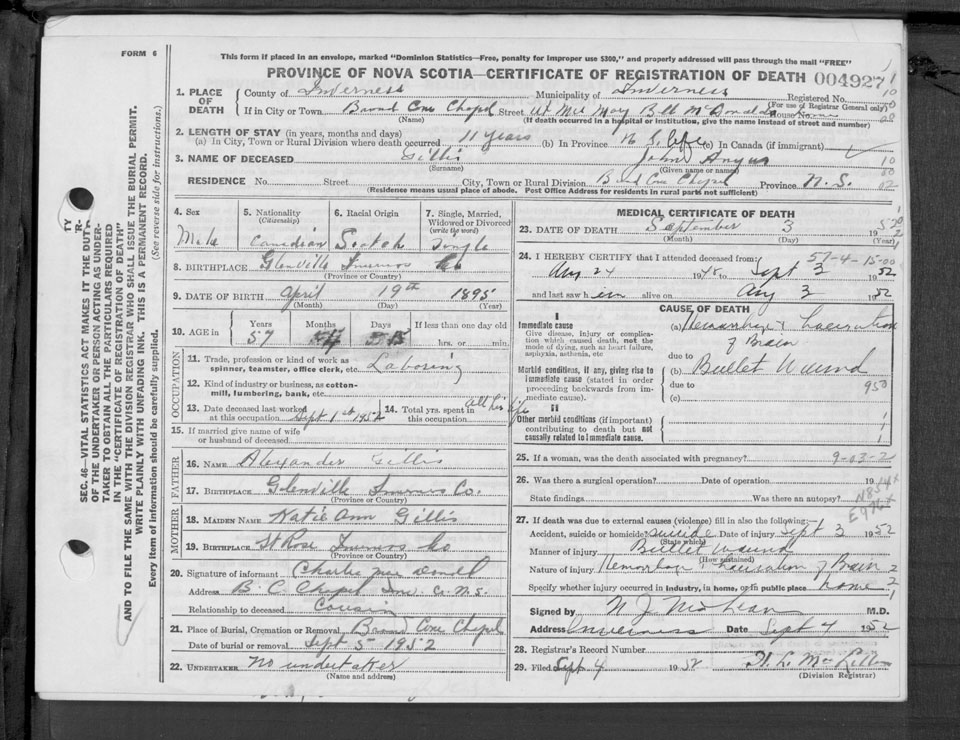 FORM 6
This form if placed in an envelope, marked "Dominion Statistics—Free, penalty for improper use $300," and properly addressed will pass through the mail "FREE"
PROVINCE OF NOVA SCOTIA—CERTIFICATE OF REGISTRATION OF DEATH 004927
1. PLACE OF DEATH County of Inverness Municipality of Inverness Registered No.
(For use of Registrar General only)
If in City or Town Chapel Street at Mrs Mary Bell McDonalds House No.
(Name) (If death occurred in a hospital or institution, give the name instead of street and number)
2. LENGTH OF STAY (in years, months and days)
(a) In City, Town or Rural Division where death occurred 11 years (b) In Province N.S. life (c) In Canada (if immigrant)
3. NAME OF DECEASED Gillis John Angus
(Surname) (Given name or names)
RESIDENCE No. Street City, Town or Rural Division Chapel Province N.S.
(Residence means usual place of abode. Post Office Address for residents in rural parts not sufficient)
4. Sex Male
5. Nationality (Citizenship) Canadian
6. Racial Origin Scotch
7. Single, Married, Widowed or Divorced (write the word) Single
8. BIRTHPLACE Glenville Inverness Co
(Province or Country)
9. DATE OF BIRTH April 19th 1895
(Month) (Day) (Year)
10. AGE in Years Months Days If less than one day old
57 hrs. or min.
OCCUPATION
11. Trade, profession or kind of work as spinner, teamster, office clerk, etc. Laboring
12. Kind of industry or business, as cotton-mill, lumbering, bank, etc.
13. Date deceased last worked at this occupation Sept 1st 1952
14. Total yrs. spent in this occupation All his life
15. If married give name of wife or husband of deceased
FATHER
16. NAME Alexander Gillis
17. BIRTHPLACE Glenville Inverness Co.
(Province or Country)
MOTHER
18. MAIDEN NAME Katie Ann Gillis
19. BIRTHPLACE St Rose Inverness Co
(Province or Country)
20. Signature of informant Charlie
Address B. C. Chapel Inv. Co. N.S.
Relationship to deceased Cousin
21. Place of Burial, Cremation or Removal Chapel
Date of burial or removal Sept 5 1952
22. UNDERTAKER No undertaker
(Name and address)
MEDICAL CERTIFICATE OF DEATH
23. DATE OF DEATH September 3 1952
(Month) (Day) (Year)
57-4-15-00
24. I HEREBY CERTIFY that I attended deceased from:
Aug 24 1948 to Sept 3 1952
and last saw him alive on Aug 3 1952
CAUSE OF DEATH
I
Immediate cause
Give disease, injury or complication which caused death, not the mode of dying, such as heart failure, asphyxia, asthenia, etc
(a) Hemorrhage & Laceration of Brain
due to
Morbid conditions, if any, giving rise to immediate cause (stated in order proceeding backwards from immediate cause).
(b) Bullet Wound
due to
950
(c)
II
Other morbid conditions (if important) contributing to death but not causally related to immediate cause.
25. If a woman, was the death associated with pregnancy? 9-03-2
26. Was there a surgical operation? Date of operation 19
State findings Was there an autopsy?
N854x
E976x
27. If death was due to external causes (violence) fill in also the following:
Accident, suicide or homicide Suicide Date of injury Sept 3 1952
(State which)
Manner of injury Bullet wound
(How sustained)
Nature of injury Hemorrhage & Laceration of Brain
Specify whether injury occurred in industry, in home, or in public place home
Signed by N J McLean M.D.
Address Inverness Date Sept 4 1952
28. Registrar's Record Number
29. Filed Sept 4 1952
(Division Registrar)
SEC. 46—VITAL STATISTICS ACT MAKES IT THE DUTY
OF THE UNDERTAKER OR PERSON ACTING AS UNDER-
TAKER TO OBTAIN ALL THE PARTICULARS REQUIRED
IN THE "CERTIFICATE OF REGISTRATION OF DEATH"
AND TO FILE THE SAME WITH THE DIVISION REGISTRAR WHO SHALL ISSUE THE BURIAL PERMIT.
WRITE PLAINLY WITH UNFADING INK. THIS IS A PERMANENT RECORD.
Every item of information should be carefully supplied. (See reverse side for instructions.)